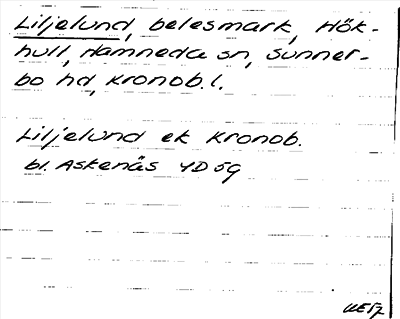 Liljelund, belesmark, Hök-
hull, Hamneda sn, Sunner-
bo hd, Kronob. l.
Liljelund ek Kronob.
bl. Askenäs 4D 5g